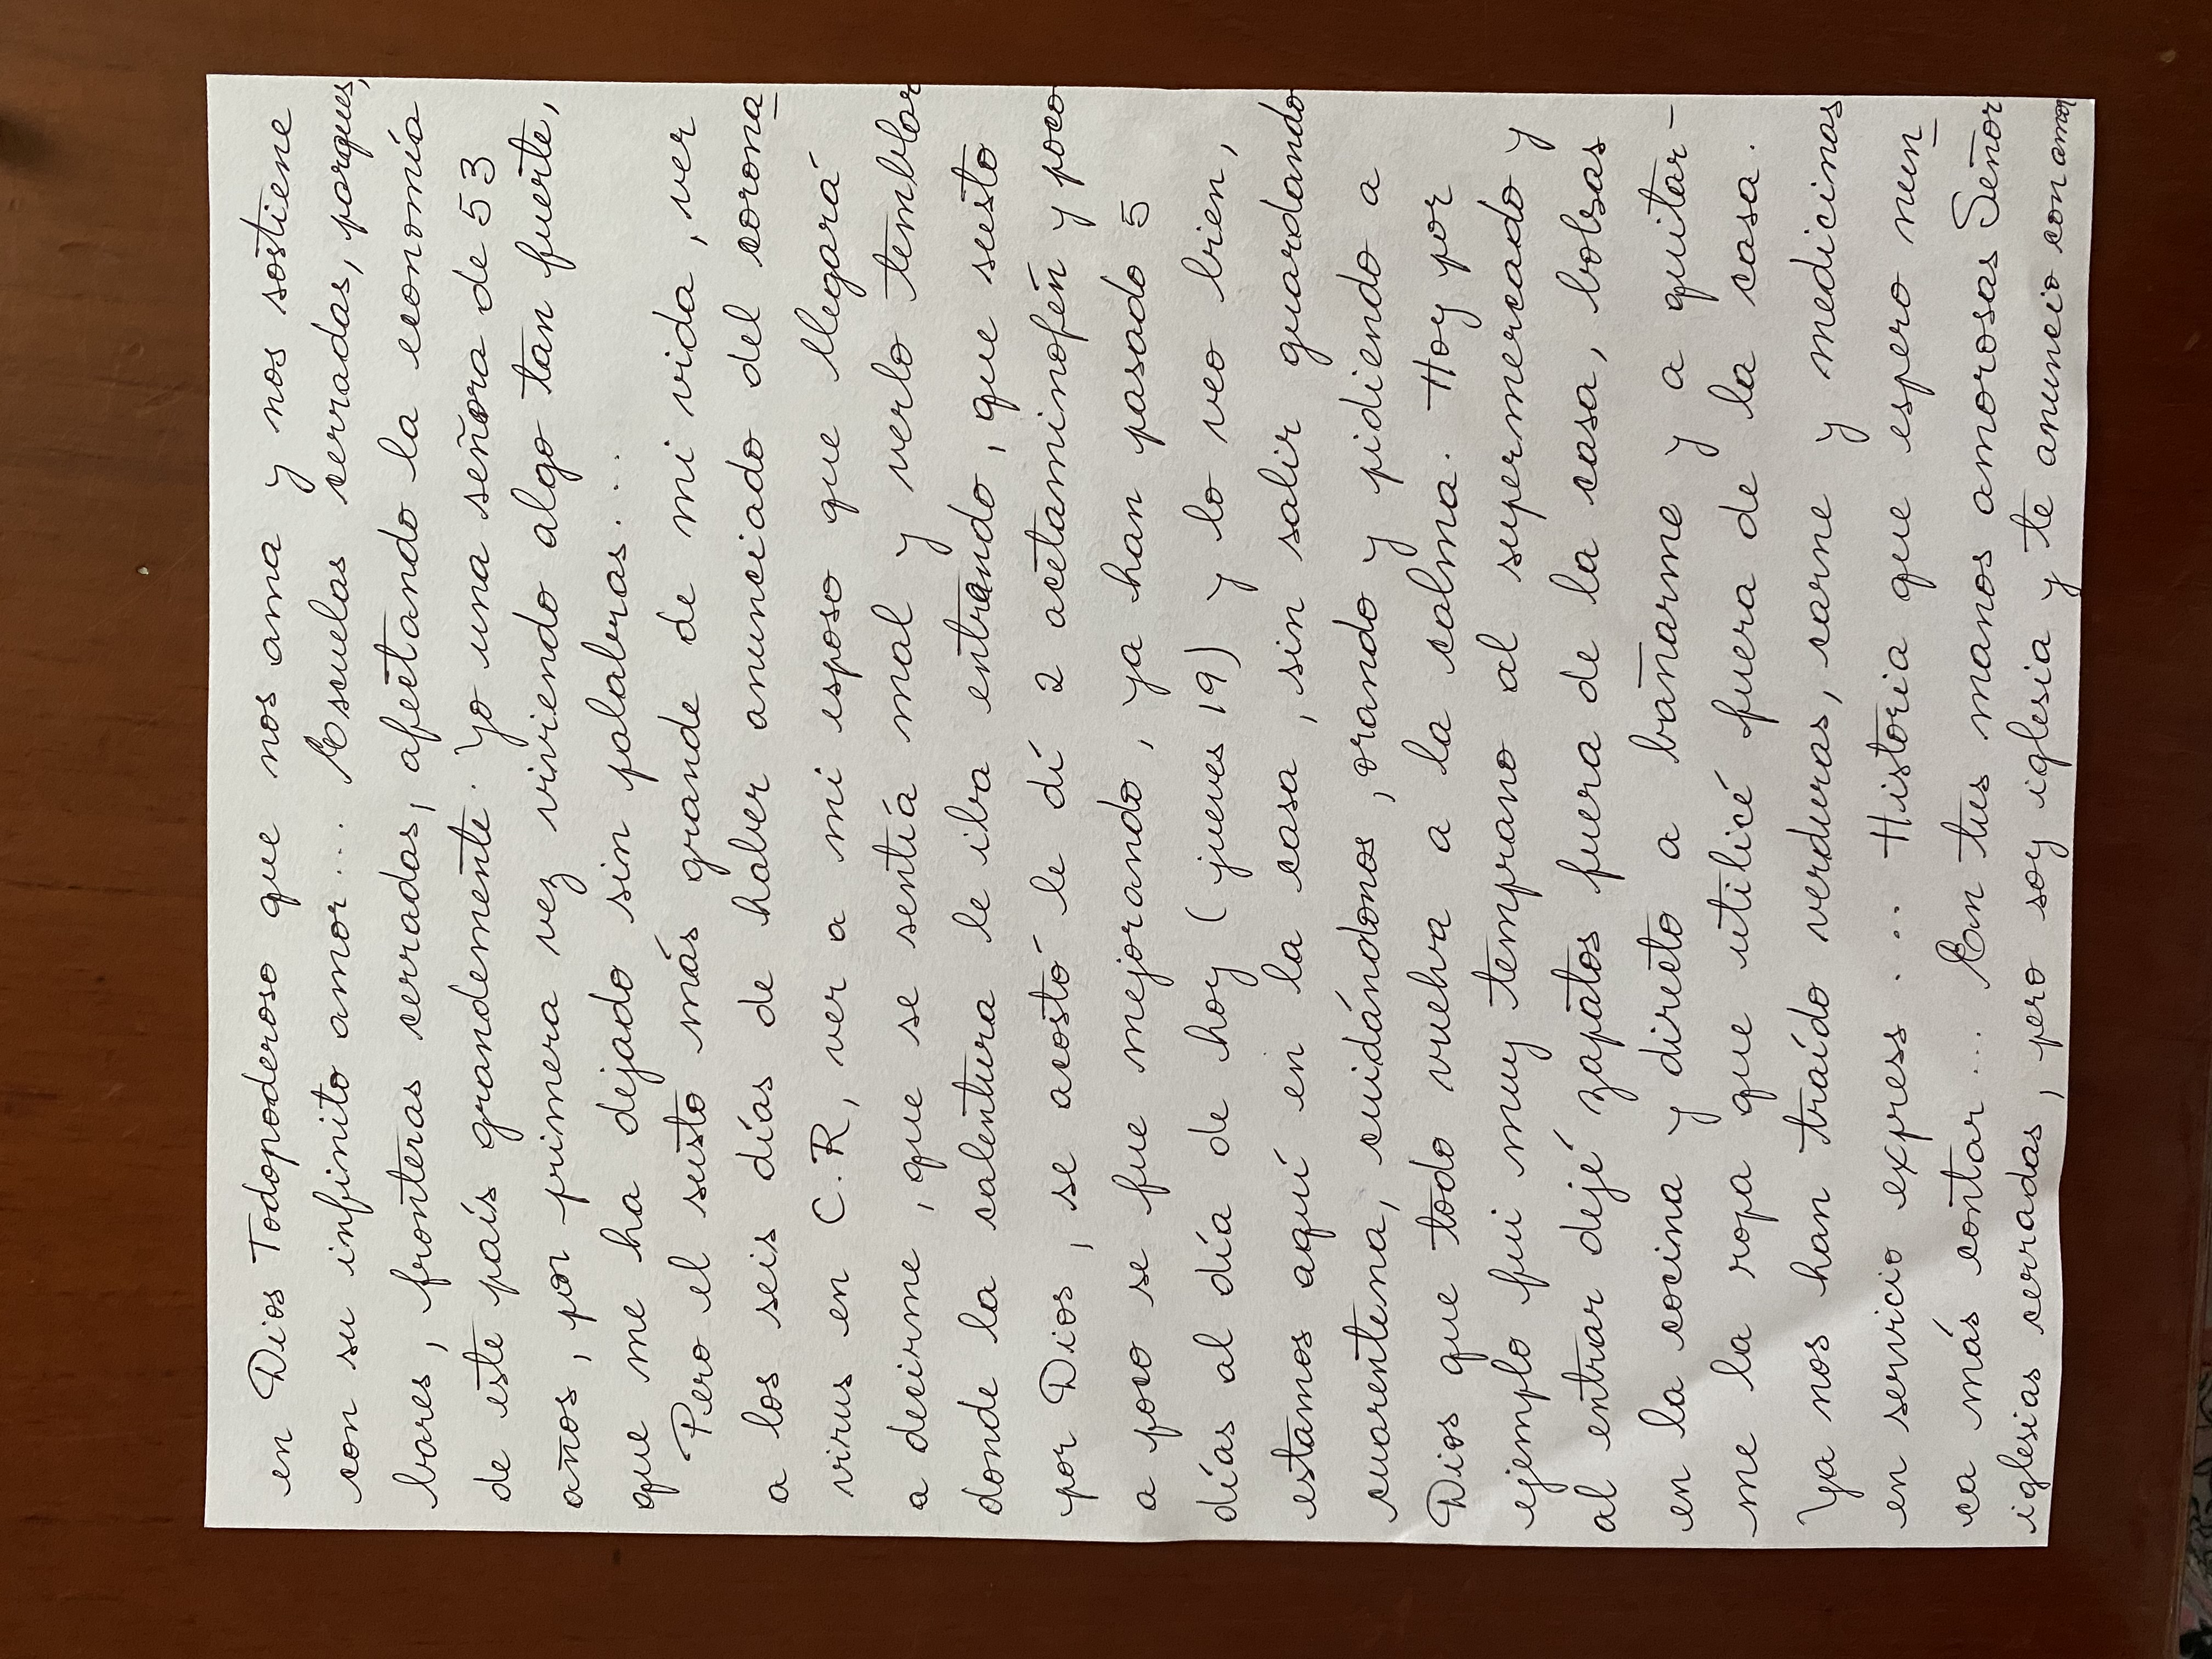 en Dios Todopoderoso que nos ama y nos sostiene
con su infinito amor... Escuelas cerradas, parques,
bares, fronteras cerradas, afectando la economía
de este país grandemente. Yo una señora de 53
años, por primera vez viviendo algo tan fuerte,
que me ha dejado sin palabras...
Pero el susto más grande de mi vida, ver
a los seis días de haber anunciado del corona
virus en C.R, ver a mi esposo que llegará
a decirme, que se sentía mal y verlo temblar
donde la calentura le iba entrando, que susto
por Dios, se acostó le dí 2 acetaminofén y poco
a poco se fue mejorando, ya han pasado 5
días al día de hoy (jueves 19) y lo veo bien,
estamos aquí en la casa, sin salir guardando
cuarentena, cuidándonos, orando y pidiendo a
Dios que todo vuelva a la calma. Hoy por
ejemplo fui muy temprano al supermercado y
al entrar dejé zapatos fuera de la casa, bolsas
en la cocina y directo a bañarme y a quitar-
me la ropa que utilicé fuera de la casa.
Ya nos han traído verduras, carne y medicinas
en servicio express... Historia que espero nun
ca más contar... En tus manos amorosas Señor
iglesias cerradas, pero soy iglesia y te anuncio con amor